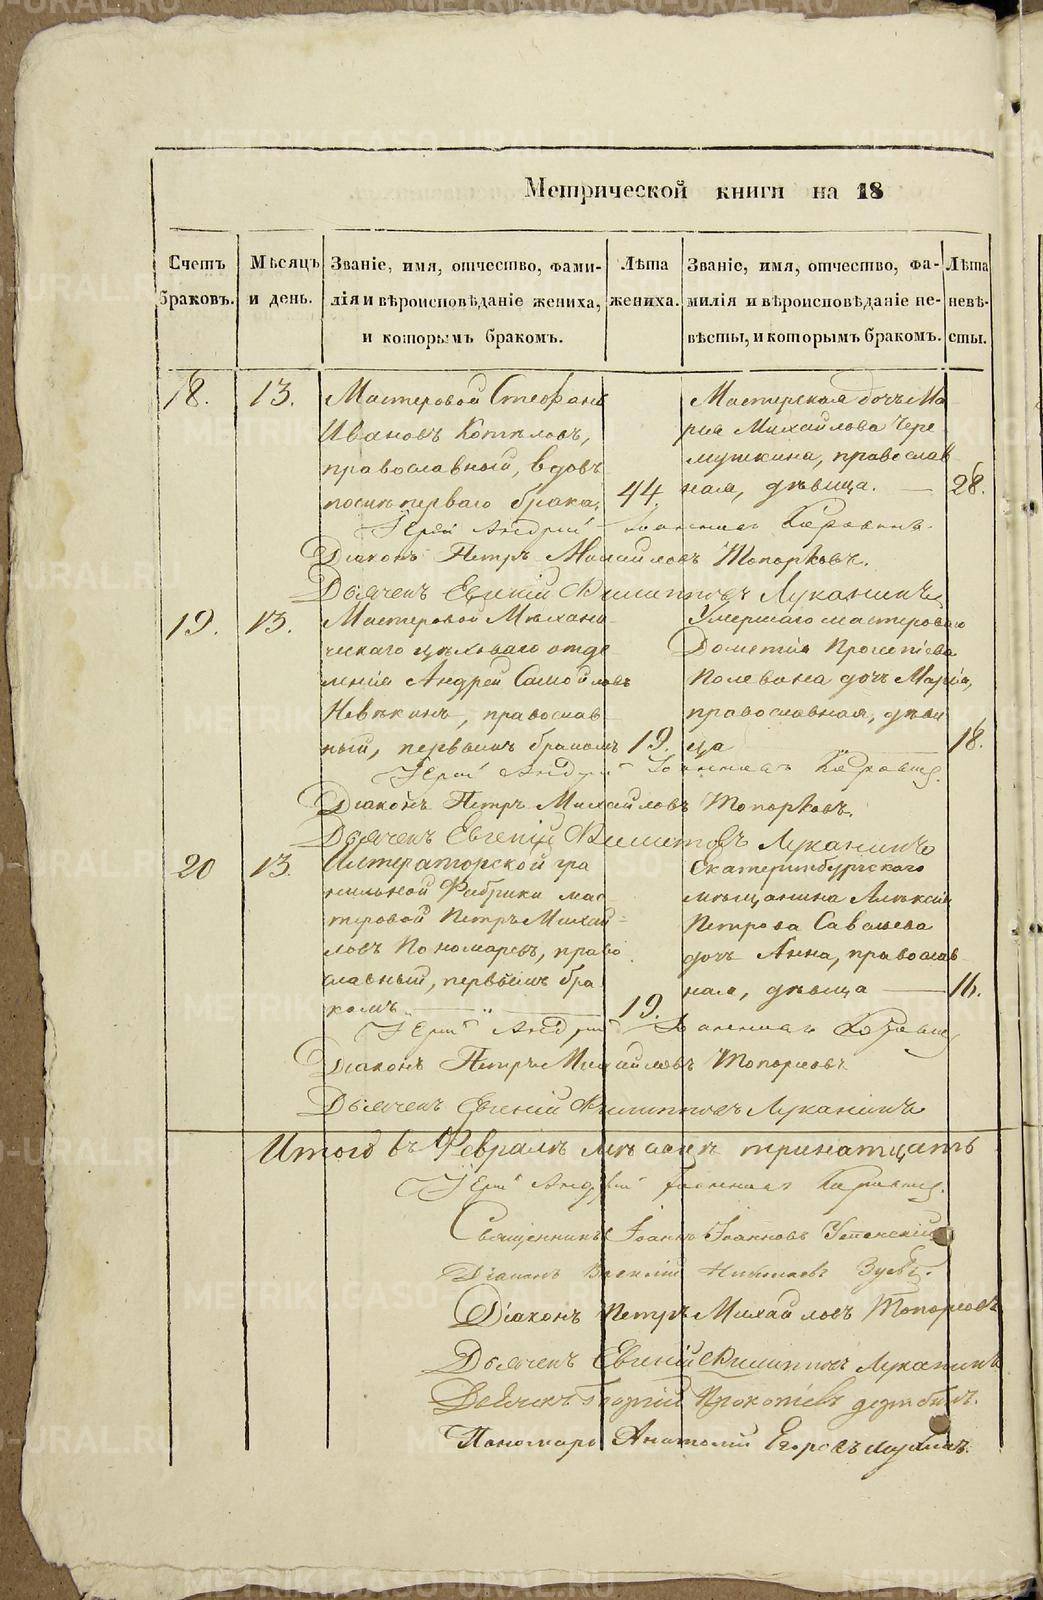 Метрической книги на 18
Счетъ браковъ.
Мѣсяцъ и день.
Званіе, имя, отчество, фами-
лія и вѣроисповѣданіе жениха,
и которымъ бракомъ.
Лѣта
жениха.
Званіе, имя, отчество, фа-
милія и вѣроисповѣданіе не-
вѣсты, и которымъ бракомъ.
Лѣта
невѣ-
сты.
18.
13.
Мастеровой Стефанъ
Ивановъ Котловъ,
православный, вдовъ
послѣ перваго брака,
44.
Мастерская дочь Ма
рия Михайлова Чере
мушкина, православ
ная, дѣвица. —
28.
Іерей Андрей Іоанновъ
Діаконъ Петръ Михайловъ Топорковъ.
Дьячекъ Евгеній Филипповъ Луканинъ
19.
13.
Мастеровой Механи
ческаго цѣльваго отдѣ
ленія Андрей Самойловъ
Невѣкинъ, православ
ный, первымъ бракомъ
19.
Умершаго мастероваго
Дометія Прокопіева
Полевана дочь Марія,
православная, дѣви
ца
18.
Іерей Андрей Іоанновъ
Діаконъ Петръ Михайловъ Топорковъ.
Дьячекъ Евгеній Филипповъ Луканинъ
20
13.
Императорской гра
нильной Фабрики мас
теровой Петръ Михай
ловъ Пономаревъ, право
славный, первымъ бра
комъ
19.
Екатеринбургскаго
мѣщанина Алексія
Петрова Савельева
дочь Анна, православ
ная, дѣвица —
16.
Іерей Андрей Іоанновъ
Діаконъ Петръ Михайловъ Топорковъ
Дьячекъ Евгеній Филипповъ Луканинъ
Итого въ Февралѣ мѣсяцѣ тринатцать
Іерей Андрей Іоанновъ
Священникъ Іоаннъ Іоанновъ Успенскій
Діаконъ Василій Николаевъ
Діаконъ Петръ Михайловъ Топорковъ
Дьячекъ Евгеній Филипповъ Луканинъ
Дьячекъ Георгій Прокопіевъ
Пономарь Анатолій Егоровъ
METRIKI.GASO-URAL.RU